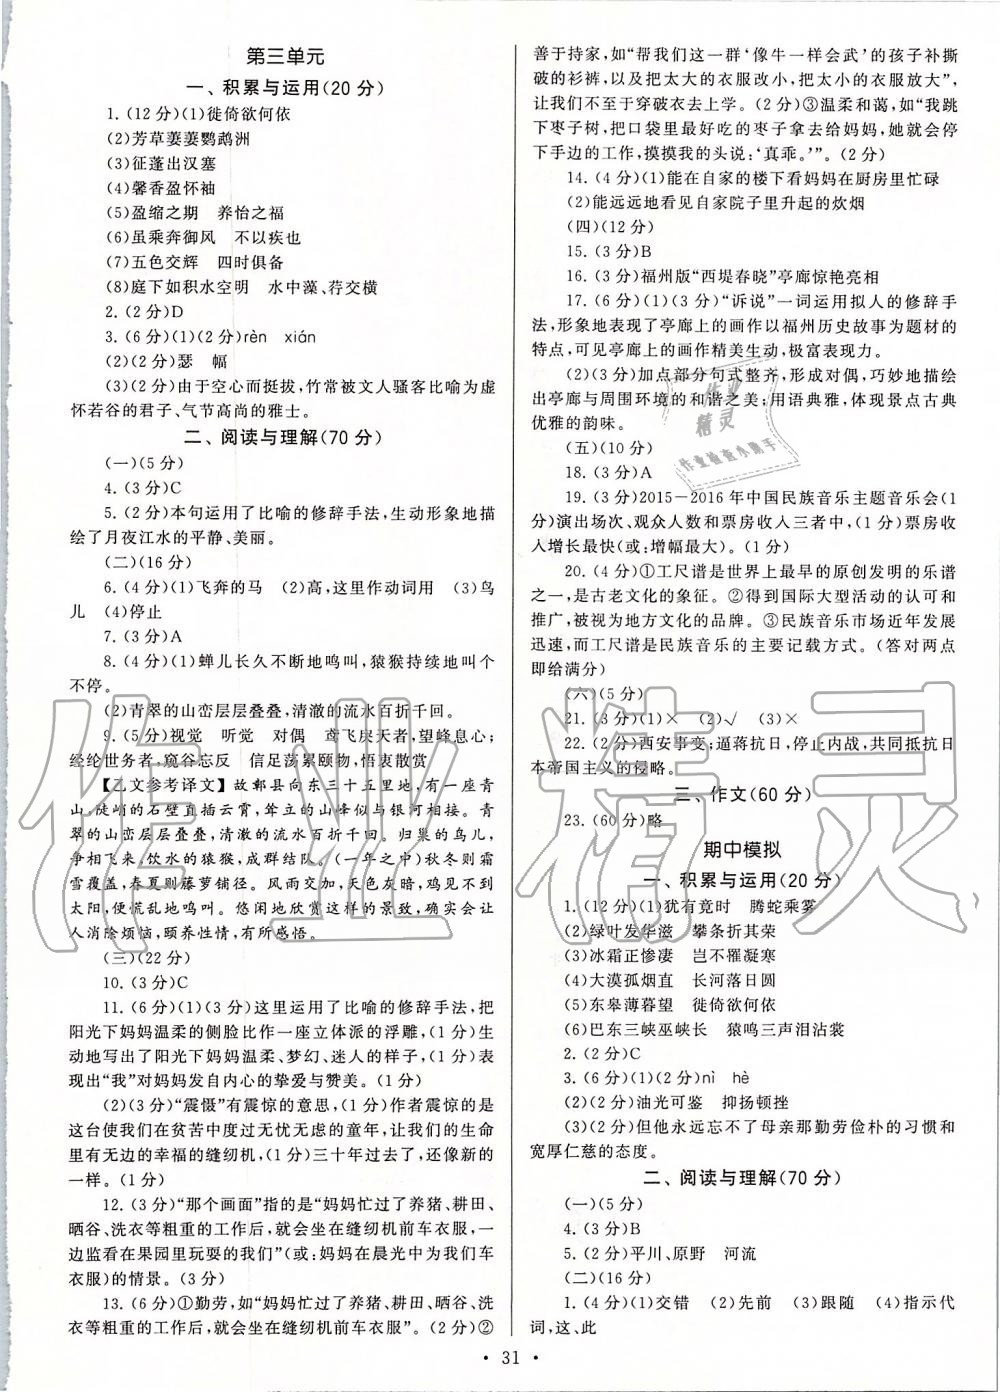 第三单元
一、积累与运用(20分)
1.(12分)(1)徙倚欲何依
(2)芳草萋萋鹦鹉洲
(3)征蓬出汉塞
(4)馨香盈怀袖
(5)盈缩之期　养怡之福
(6)虽乘奔御风　不以疾也
(7)五色交辉　四时俱备
(8)庭下如积水空明　水中藻、荇交横
2.(2分)D
3.(6分)(1)(2分)rèn　xián
(2)(2分)瑟　幅
(3)(2分)由于空心而挺拔,竹常被文人骚客比喻为虚
怀若谷的君子、气节高尚的雅士。
二、阅读与理解(70分)
(一)(5分)
4.(3分)C
5.(2分)本句运用了比喻的修辞手法,生动形象地描
绘了月夜江水的平静、美丽。
(二)(16分)
6.(4分)(1)飞奔的马　(2)高,这里作动词用　(3)鸟
儿　(4)停止
7.(3分)A
8.(4分)(1)蝉儿长久不断地鸣叫,猿猴持续地叫个
不停。
(2)青翠的山峦层层叠叠,清澈的流水百折千回。
9.(5分)视觉　听觉　对偶　鸢飞戾天者,望峰息心;
经纶世务者,窥谷忘反　信足荡累颐物,悟衷散赏
【乙文参考译文】故鄣县向东三十五里地,有一座青
山,陡峭的石壁直插云霄,耸立的山峰似与银河相接。青
翠的山峦层层叠叠,清澈的流水百折千回。归巢的鸟儿,
争相飞来,饮水的猿猴,成群结队。(一年之中)秋冬则霜
雪覆盖,春夏则藤萝铺径。风雨交加,天色灰暗,鸡见不到
太阳,便慌乱地鸣叫。悠闲地欣赏这样的景致,确实会让
人消除烦恼,颐养性情,有所感悟。
(三)(22分)
10.(3分)C
11.(6分)(1)(3分)这里运用了比喻的修辞手法,把
阳光下妈妈温柔的侧脸比作一座立体派的浮雕,(1分)生
动地写出了阳光下妈妈温柔、梦幻、迷人的样子,(1分)表
现出“我”对妈妈发自内心的挚爱与赞美。(1分)
(2)(3分)“震慑”有震惊的意思,(1分)作者震惊的是
这台使我们在贫苦中度过无忧无虑的童年,让我们的生命
有无边的幸福的缝纫机,(1分)三十年过去了,还像新的一
样。(1分)
12.(3分)“那个画面”指的是“妈妈忙过了养猪、耕田、
晒谷、洗衣等粗重的工作后,就会坐在缝纫机前车衣服,一
边监看在果园里玩耍的我们”(或:妈妈在晨光中为我们车
衣服)的情景。(3分)
13.(6分)①勤劳,如“妈妈忙过了养猪、耕田、晒谷、洗
衣等粗重的工作后,就会坐在缝纫机前车衣服”。(2分)②
善于持家,如“帮我们这一群‘像牛一样会武’的孩子补撕
破的衫裤,以及把太大的衣服改小,把太小的衣服放大”,
让我们不至于穿破衣去上学。(2分)③温柔和蔼,如“我跳
下枣子树,把口袋里最好吃的枣子拿去给妈妈,她就会停
下手边的工作,摸摸我的头说:‘真乖。’”。(2分)
14.(4分)(1)能在自家的楼下看妈妈在厨房里忙碌
(2)能远远地看见自家院子里升起的炊烟
(四)(12分)
15.(3分)B
16.(3分)福州版“西堤春晓”亭廊惊艳亮相
17.(6分)(1)(3分)“诉说”一词运用拟人的修辞手
法,形象地表现了亭廊上的画作以福州历史故事为题材的
特点,可见亭廊上的画作精美生动,极富表现力。
(2)(3分)加点部分句式整齐,形成对偶,巧妙地描绘
出亭廊与周围环境的和谐之美;用语典雅,体现景点古典
优雅的韵味。
(五)(10分)
18.(3分)A
19.(3分)2015－2016年中国民族音乐主题音乐会(1
分)演出场次、观众人数和票房收入三者中,(1分)票房收
入增长最快(或:增幅最大)。(1分)
20.(4分)①工尺谱是世界上最早的原创发明的乐谱
之一,是古老文化的象征。②得到国际大型活动的认可和
推广,被视为地方文化的品牌。③民族音乐市场近年发展
迅速,而工尺谱是民族音乐的主要记载方式。(答对两点
即给满分)
(六)(5分)
21.(3分)(1)×　(2)√　(3)×
22.(2分)西安事变;逼蒋抗日,停止内战,共同抵抗日
本帝国主义的侵略。
三、作文(60分)
23.(60分)略
期中模拟
一、积累与运用(20分)
1.(12分)(1)犹有竟时　腾蛇乘雾
(2)绿叶发华滋　攀条折其荣
(3)冰霜正惨凄　岂不罹凝寒
(4)大漠孤烟直　长河落日圆
(5)东皋薄暮望　徙倚欲何依
(6)巴东三峡巫峡长　猿鸣三声泪沾裳
2.(2分)C
3.(6分)(1)(2分)nì　hè
(2)(2分)油光可鉴　抑扬顿挫
(3)(2分)但他永远忘不了母亲那勤劳俭朴的习惯和
宽厚仁慈的态度。
二、阅读与理解(70分)
(一)(5分)
4.(3分)B
5.(2分)平川、原野　河流
(二)(16分)
1.(4分)(1)交错　(2)先前　(3)跟随　(4)指示代
词,这、此
• 31 •
作业精灵
作业
精灵
作业检查小助手